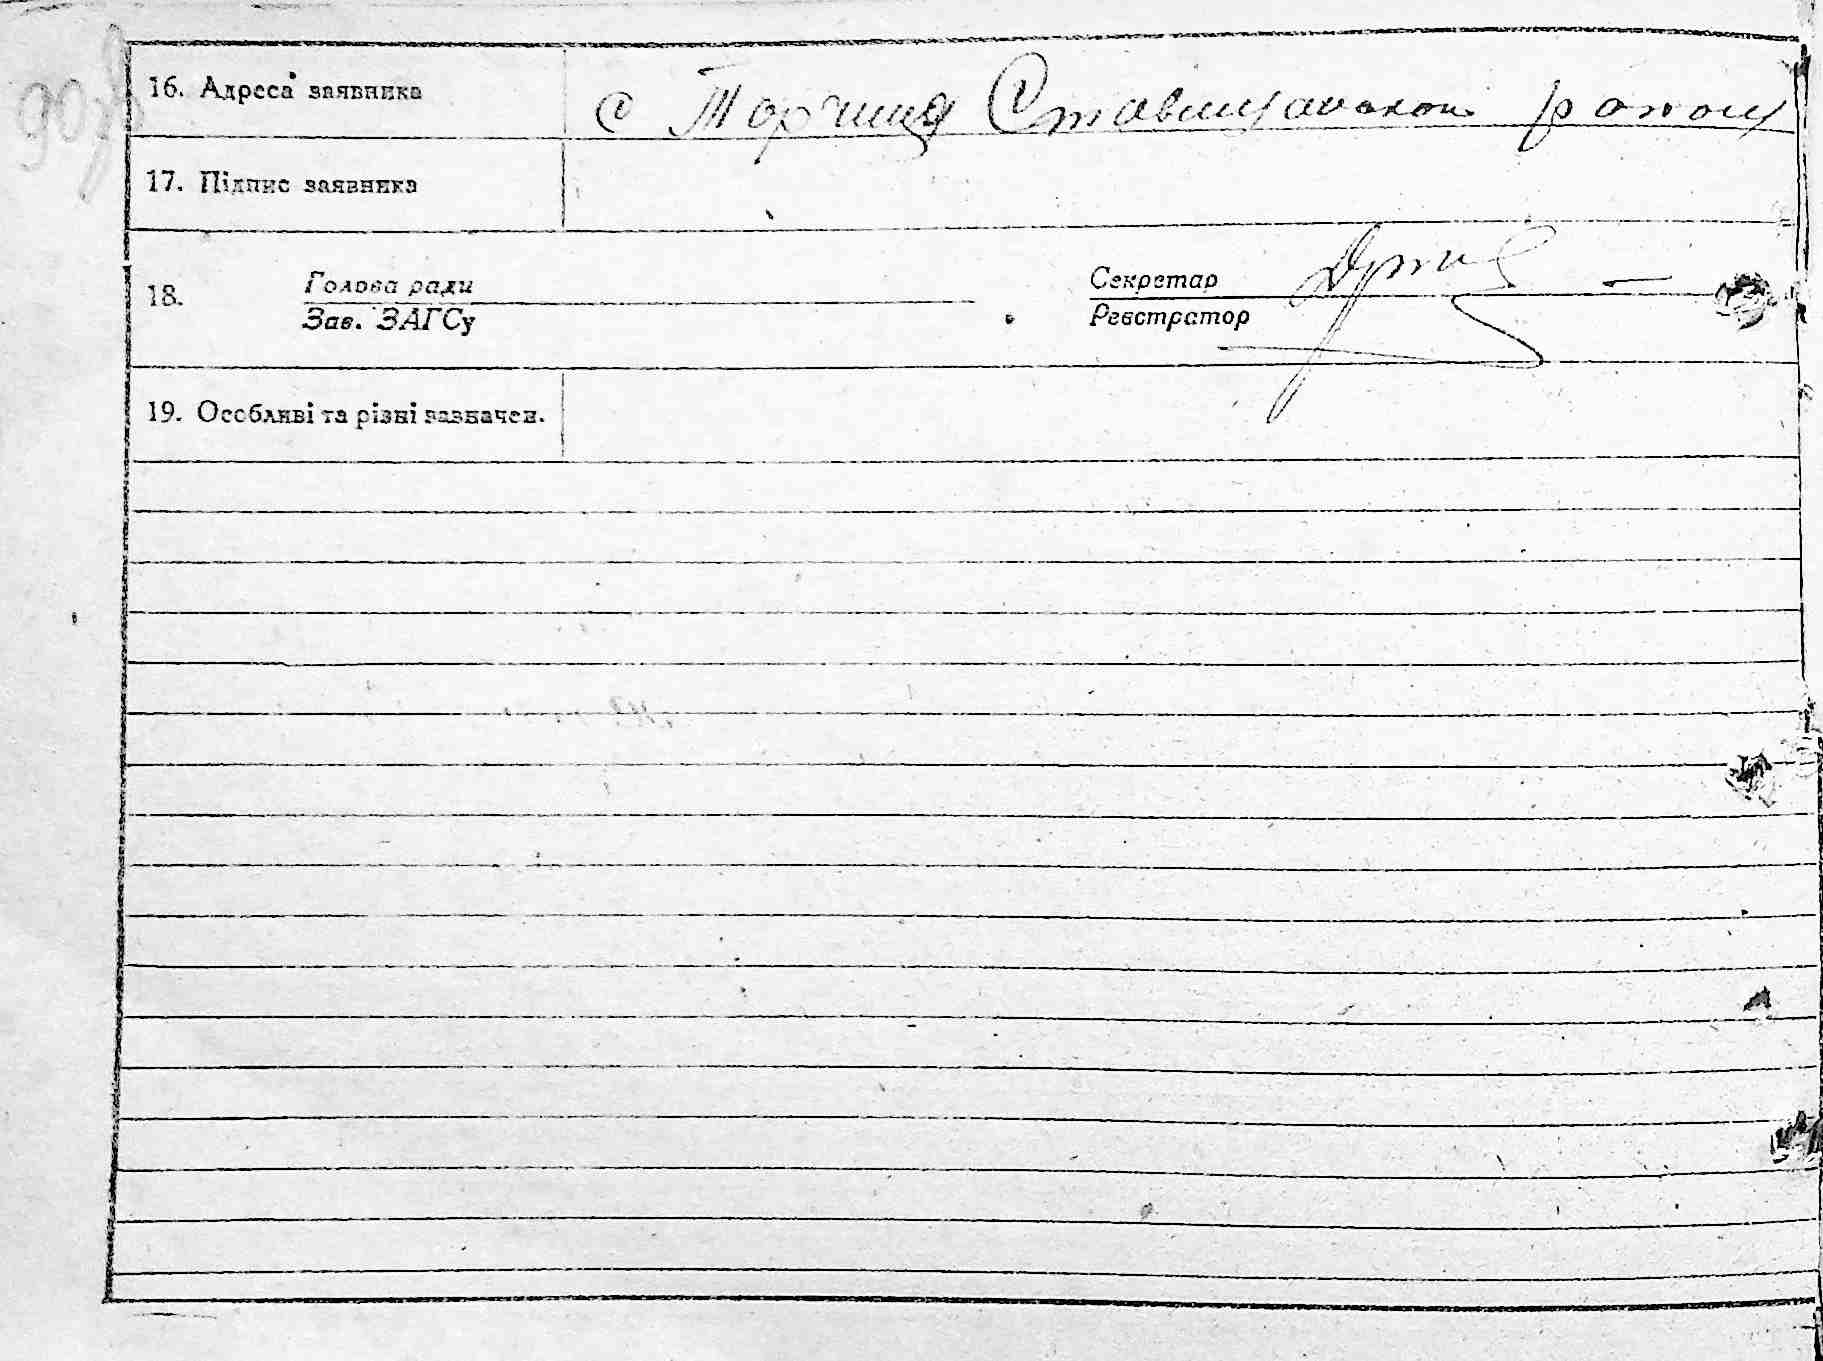 16. Адреса заявника с Торчиця Ставищанского району
17. Підпис заявника
18. Голова ради Секретар
Зав. ЗАГСу Реєстратор
19. Особливі та різні зазначен.